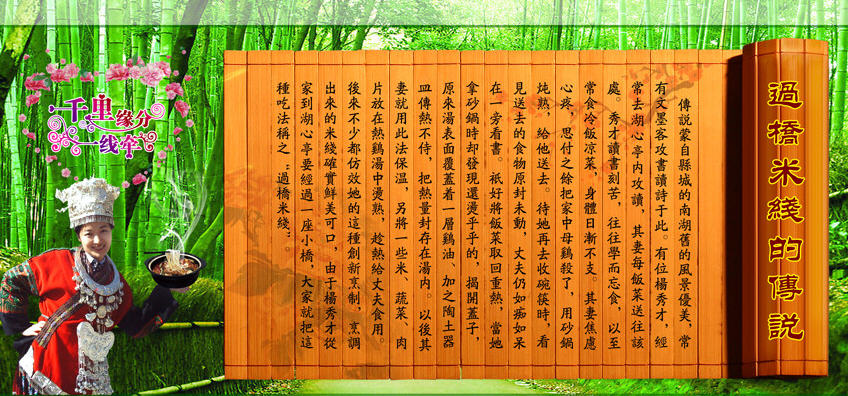 過橋米綫的傳説
傳説蒙自縣城的南湖舊的風景優美，常
有文墨客攻書讀詩于此。有位楊秀才，經
常去湖心亭内攻讀，其妻每飯菜送往該
處。秀才讀書刻苦，往往學而忘食，以至
常食冷飯凉菜，身體日漸不支。其妻焦慮
心疼，思付之餘把家中母鷄殺了，用砂鍋
炖熟，給他送去。待她再去收碗筷時，看
見送去的食物原封未動，丈夫仍如痴如呆
在一旁看書。祇好將飯菜取回重熱，當她
拿砂鍋時却發現還燙乎乎的，揭開蓋子，
原來湯表面覆蓋着一層鷄油、加之陶土器
皿傳熱不侍，把熱量封存在湯内。以後其
妻就用此法保温，另將一些米、蔬菜、肉
片放在熱鷄湯中燙熟，趁熱給丈夫食用。
後來不少都仿效她的這種創新烹制，烹調
出來的米綫確實鮮美可口，由于楊秀才從
家到湖心亭要經過一座小橋，大家就把這
種吃法稱之“過橋米綫”.
千里缘分
一线牵